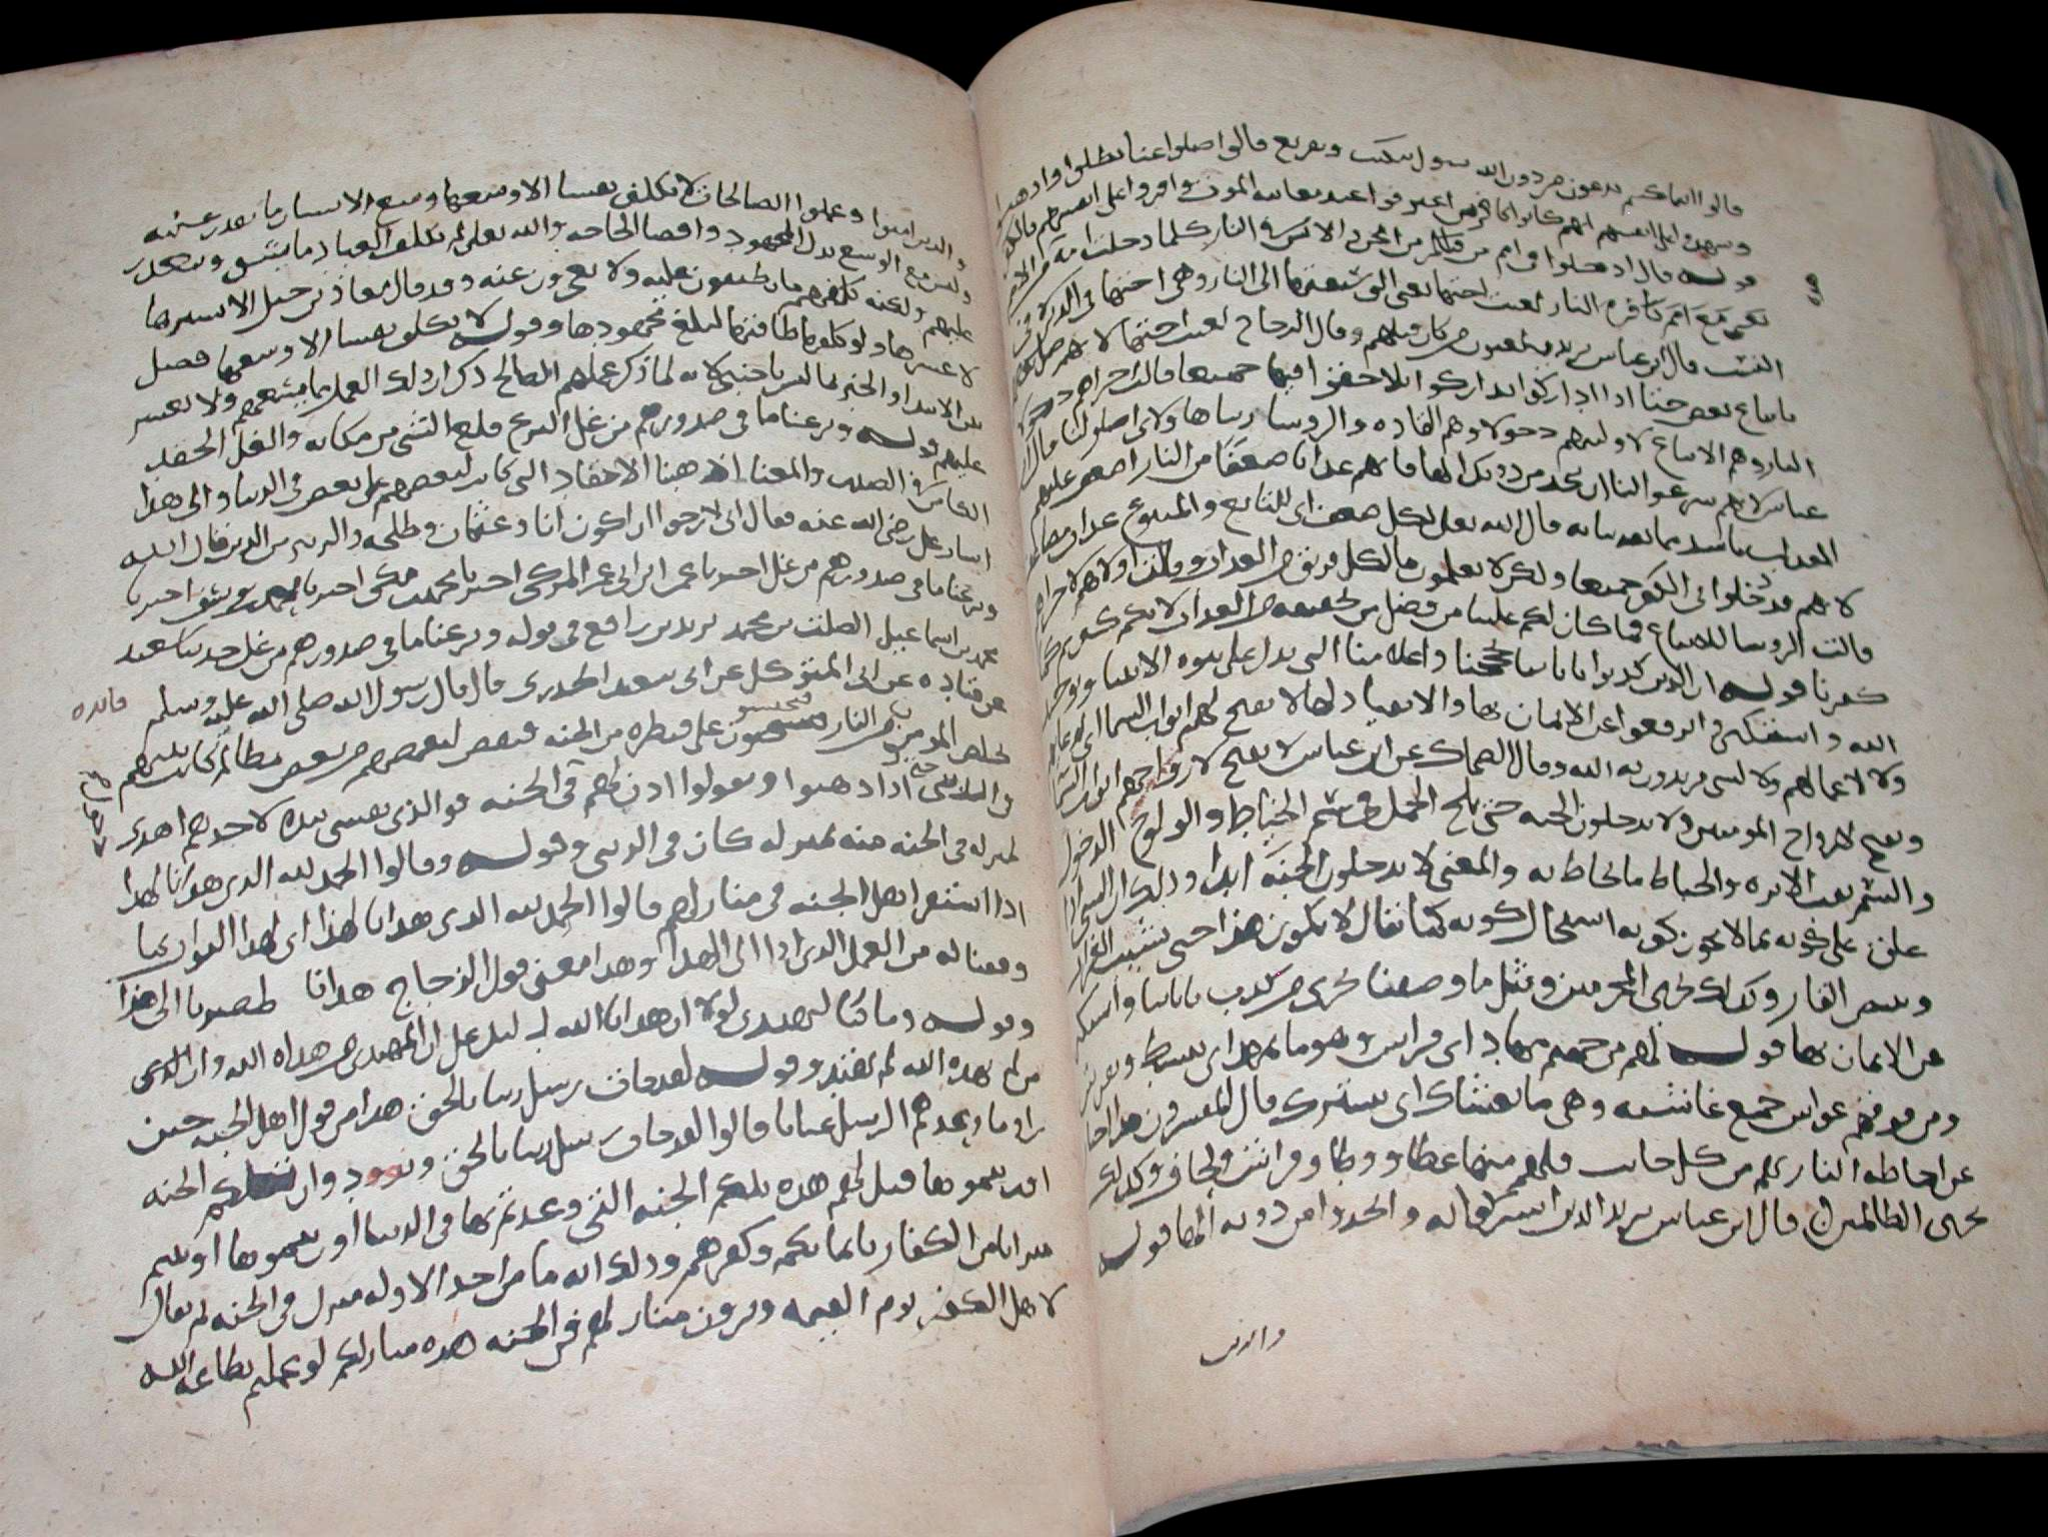 قالوا اينما كنتم تدعون من دون الله سوال تبكيت وتقريع قالوا ضلوا عنا بطلوا وذهبوا
وشهدوا على انفسهم انهم كانوا كافرين اعترفوا عند معاينه الموت واقروا على انفسهم بالكفر
قوله قال ادخلوا في امم قد خلت من قبلكم من الجن والانس في النار كلما دخلت امه من الامم
يعني مع امم كافره النار لعنت اختها يعني التي سبقتها الى النار وهي اختها في الدين لا في
النسب قال ابن عباس يريد يلعنون من كان قبلهم وقال الزجاج لعنت اختها لانهم ضل بعضهم
باتباع بعض حتى اذا اداركوا تداركوا تلاحقوا فيها جميعا قالت اخراهم دخولا
النار وهم الاتباع لاوليهم دخولا وهم القاده والروسا ربنا هاولاء اضلونا قال ابن
عباس لانهم شرعوا لنا ان نتخذ من دونك الها فاتهم عذابا ضعفا من النار اضعف عليهم
العذاب باشد مما تعذبنا به قال الله تعلى لكل ضعف اى للتابع والمتبوع عذاب مضاعف
لانهم قد دخلوا في الكفر جميعا ولكن لا تعلمون ما لكل فريق من العذاب وقالت اولاهم لاخراهم
قالت الروسا للاتباع فما كان لكم علينا من فضل من تخفيف من العذاب لانكم كفرتم كما
كفرنا قوله ان الذين كذبوا باياتنا بحججنا واعلامنا التي تدل على نبوه الانبيا وتوحيد
الله واستكبروا ترفعوا عن الايمان بها والانقياد لها لا تفتح لهم ابواب السما اى لدعايهم
ولا لاعمالهم ولا لشى مما يريدون به الله وقال الضحاك عن ابن عباس لا تفتح لارواحهم ابواب السما
وتفتح لارواح المومنين ولا يدخلون الجنه حتى يلج الجمل في سم الخياط والولوج الدخول
والسم ثقب الابره والخياط ما يخاط به والمعنى لا يدخلون الجنه ابدا وذلك ان الشى اذا
علق على كونه بما لا يجوز كونه استحال كونه كما يقال لا يكون هذا حتى يشيب الغراب
ويبيض القار وكذلك نجزى المجرمين ومثل ما وصفنا نجزى من كذب باياتنا واستكبر
عن الايمان بها قوله لهم من جهنم مهاد اى فراش وهو ما يمهد اى يبسط ويفرش
ومن فوقهم غواش جمع غاشيه وهى ما يغشاك اى يسترك قال المفسرون هذا اخبار
عن احاطه النار بهم من كل جانب فلهم منها غطا ووطا وفراش ولحاف وكذلك
نجزى الظالمين قال ابن عباس يريد الذين اشركوا به واتخذوا من دونه الها قوله
والذين
والذين امنوا وعملوا الصالحات لا نكلف نفسا الا وسعها وسع الانسان ما يقدر عليه
وليس مع الوسع بذل المجهود واقصا الطاقه والله تعلى لم يكلف العباد ما يشق ويتعذر
عليهم ولكنه كلفهم ما يطيقون عليه ولا يعجزون عنه وقد قال معاذ بن جبل الا يسرها
لا عسرها ولو كلفها طاقتها لبلغ مجهودها وقوله لا نكلف نفسا الا وسعها فصل
بين الابتدا والخبر بما ليس باجنبي لانه لما ذكر عملهم الصالح ذكر ان ذلك العمل مما يسعهم ولا يعسر
عليهم قوله ونزعنا ما في صدورهم من غل النزع قلع الشى من مكانه والغل الحقد
الكامن في الصدر والمعنا اذهبنا الاحقاد التي كانت لبعضهم على بعض في الدنيا والى هذا
اشار علي رضى الله عنه فقال انى لارجوا ان اكون انا وعثمان وطلحه والزبير من الذين قال الله
ونزعنا ما في صدورهم من غل اخبرنا عمر ابن ابي عمر المزكى اخبرنا محمد بن مكى اخبرنا محمد بن يوسف اخبرنا
محمد بن اسماعيل الصلت بن محمد يزيد بن زريع في قوله ونزعنا ما في صدورهم من غل حدثنا سعيد
عن قتاده عن ابي المتوكل عن ابي سعيد الخدرى قال قال رسول الله صلى الله عليه وسلم
فائده
يخلص المومنون من النار فيحبسون على قنطره من الجنه فيقص لبعضهم من بعض مظالم كانت بينهم
في الدنيا حتى اذا هذبوا ونقوا اذن لهم في الجنه فوالذى نفسى بيده لاحدهم اهدى
لمنزله في الجنه منه لمنزله كان في الدنيى وقوله وقالوا الحمد لله الذى هدانا لهذا
اذا استقر اهل الجنه في منازلهم قالوا الحمد لله الذى هدانا لهذا اى لهذا الثواب بما
وفقنا له من العمل الذى ادا الى الهدا وهذا معنى قول الزجاج هدانا صيرنا الى هذا
وقوله وما كنا لنهتدى لولا ان هدانا الله دليل على ان المهتدى من هداه الله وان الذى
من لم يهده الله لم يهتد وقوله لقد جات رسل ربنا بالحق هذا من قول اهل الجنه حين
راوا ما وعدهم الرسل عيانا قالوا لقد جات رسل ربنا بالحق ونودوا ان تلكم الجنه
اورثتموها قيل لهم هذه تلكم الجنه التى وعدتم بها في الدنيا اورثتموها اوثتم
ميراثا من الكفار بايمانكم وكفرهم وذلك انه ما من احد الا وله منزل في الجنه ثم يقال
لاهل الكفر يوم القيمه ويرون منازلهم في الجنه هذه منازلكم لو عملتم بطاعه الله